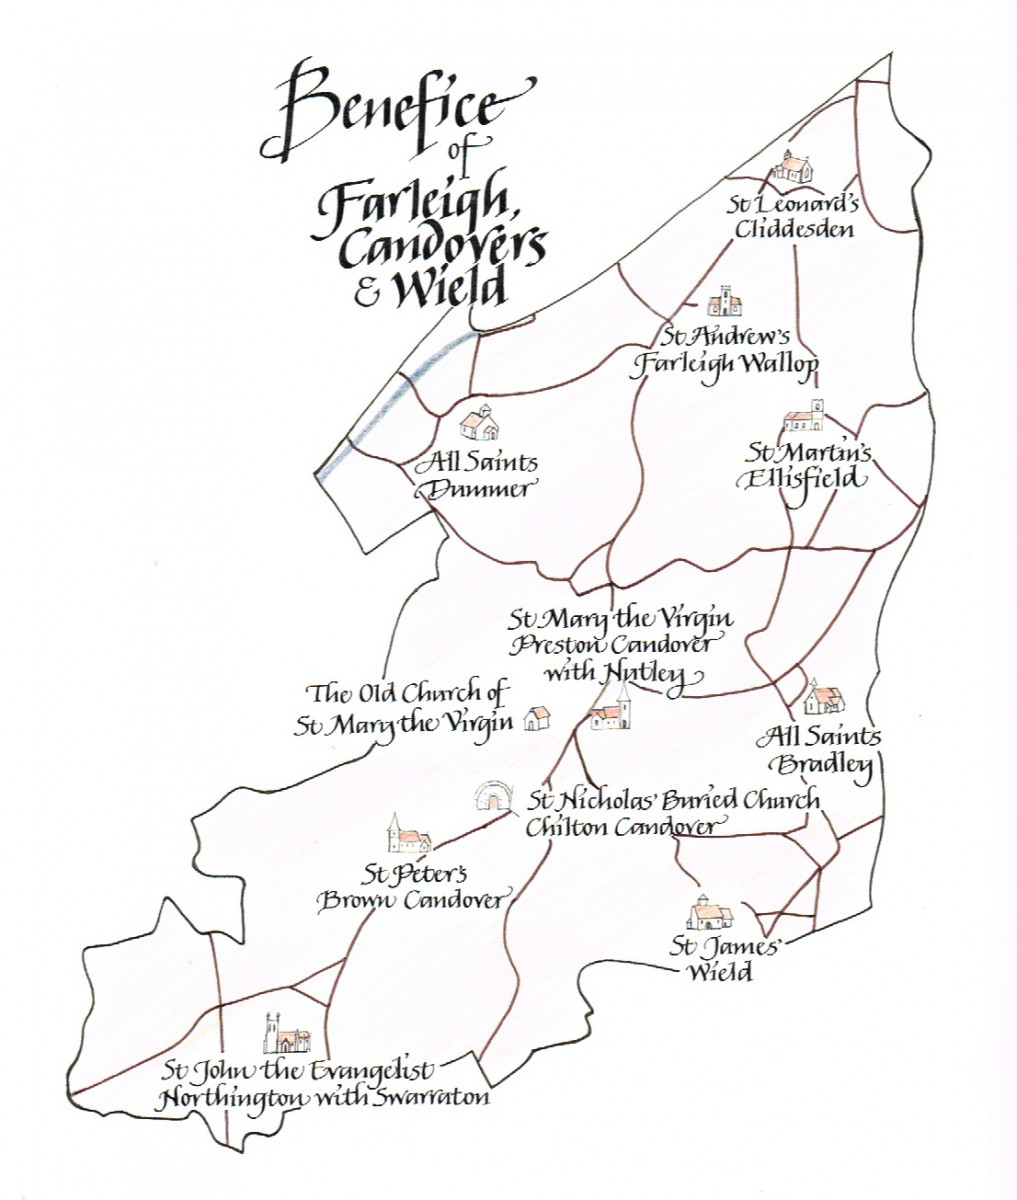 Benefice
of
Farleigh,
Candovers
& Wield
St Leonard's
Cliddesden
St Andrew's
Farleigh Wallop
St Martin's
Ellisfield
All Saints
Dummer
St Mary the Virgin
Preston Candover
with Nutley
The Old Church of
St Mary the Virgin
All Saints
Bradley
St Nicholas' Buried Church
Chilton Candover
St Peter's
Brown Candover
St James'
Wield
St John the Evangelist
Northington with Swarraton